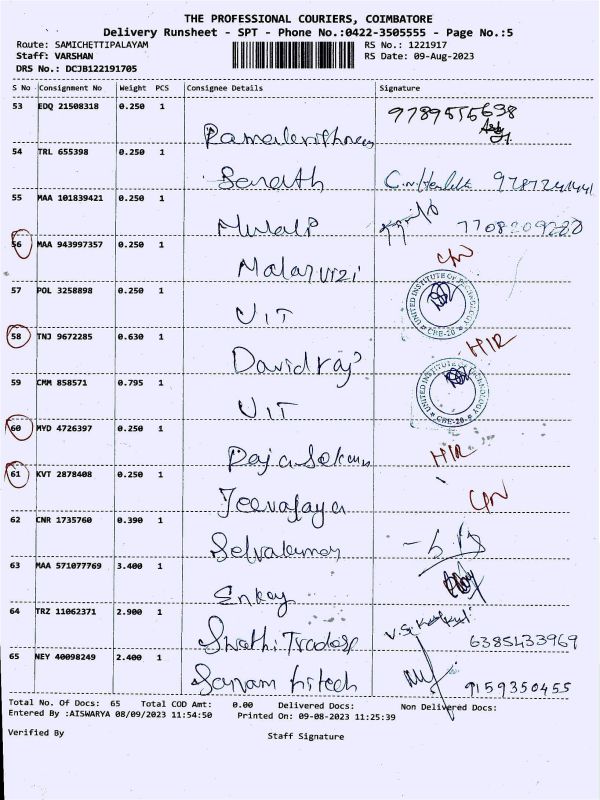 THE PROFESSIONAL COURIERS, COIMBATORE
Delivery Runsheet - SPT - Phone No.:0422-3505555 - Page No.:5
Route: SAMICHETTIPALAYAM RS No.: 1221917
Staff: VARSHAN RS Date: 09-Aug-2023
DRS No.: DCJB122191705
S No Consignment No Weight PCS Consignee Details Signature
53 EDQ 21508318 0.250 1
Ramakrishnan 9789555698
54 TRL 655398 0.250 1
Sarath 9787241441
55 MAA 101839421 0.250 1
Murali 7708209280
56 MAA 943997357 0.250 1 CN
Malarvizi
57 POL 3258898 0.250 1
UIT UNITED INSTITUTE OF TECHNOLOGY CBE-20
58 TNJ 9672285 0.630 1 HIR
David raj
59 CMM 858571 0.795 1
UIT UNITED INSTITUTE OF TECHNOLOGY CBE-20
60 MYD 4726397 0.250 1
Rajasekar HIR
61 KVT 2878408 0.250 1 CN
Jeevajaya
62 CNR 1735760 0.390 1
Selvakumar
63 MAA 571077769 3.400 1
Enkay
64 TRZ 11062371 2.900 1
Swathi Trades 6385433969
65 NEY 40098249 2.400 1
Sanam hitech 9159350455
Total No. Of Docs: 65 Total COD Amt: 0.00 Delivered Docs: Non Delivered Docs:
Entered By :AISWARYA 08/09/2023 11:54:50 Printed On: 09-08-2023 11:25:39
Verified By Staff Signature